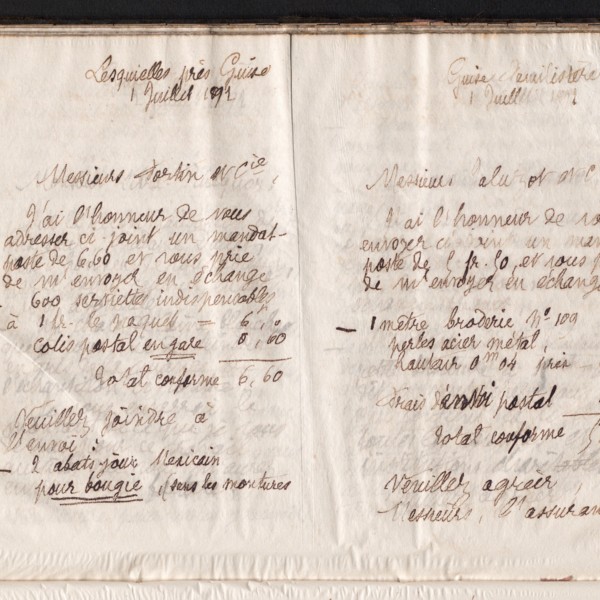 Lesquielles près Guise
1 Juillet 1891
Messieurs Fortin et Cie,
J'ai l'honneur de vous
adresser ci joint un mandat-
poste de 6,60 et vous prie
de m'envoyer en échange
- 600 serviettes indispensables
à 1 fr. le paquet = 6,
colis postal en gare 0,60
Total conforme 6,60
Veuillez joindre à
l'envoi :
- 2 abats jour Mexicain
pour bougie, sans les montures
Guise
1 Juill
Messieurs et C
J'ai l'honneur de vo
envoyer ci joint un man
poste de fr. 50, et vous p
de m'envoyer en échang
- 1 mètre broderie No 109
perles acier métal,
hauteur 0m04 près
Frais d'envoi postal
Total conforme
Veuillez agréer,
Messieurs, l'assuran